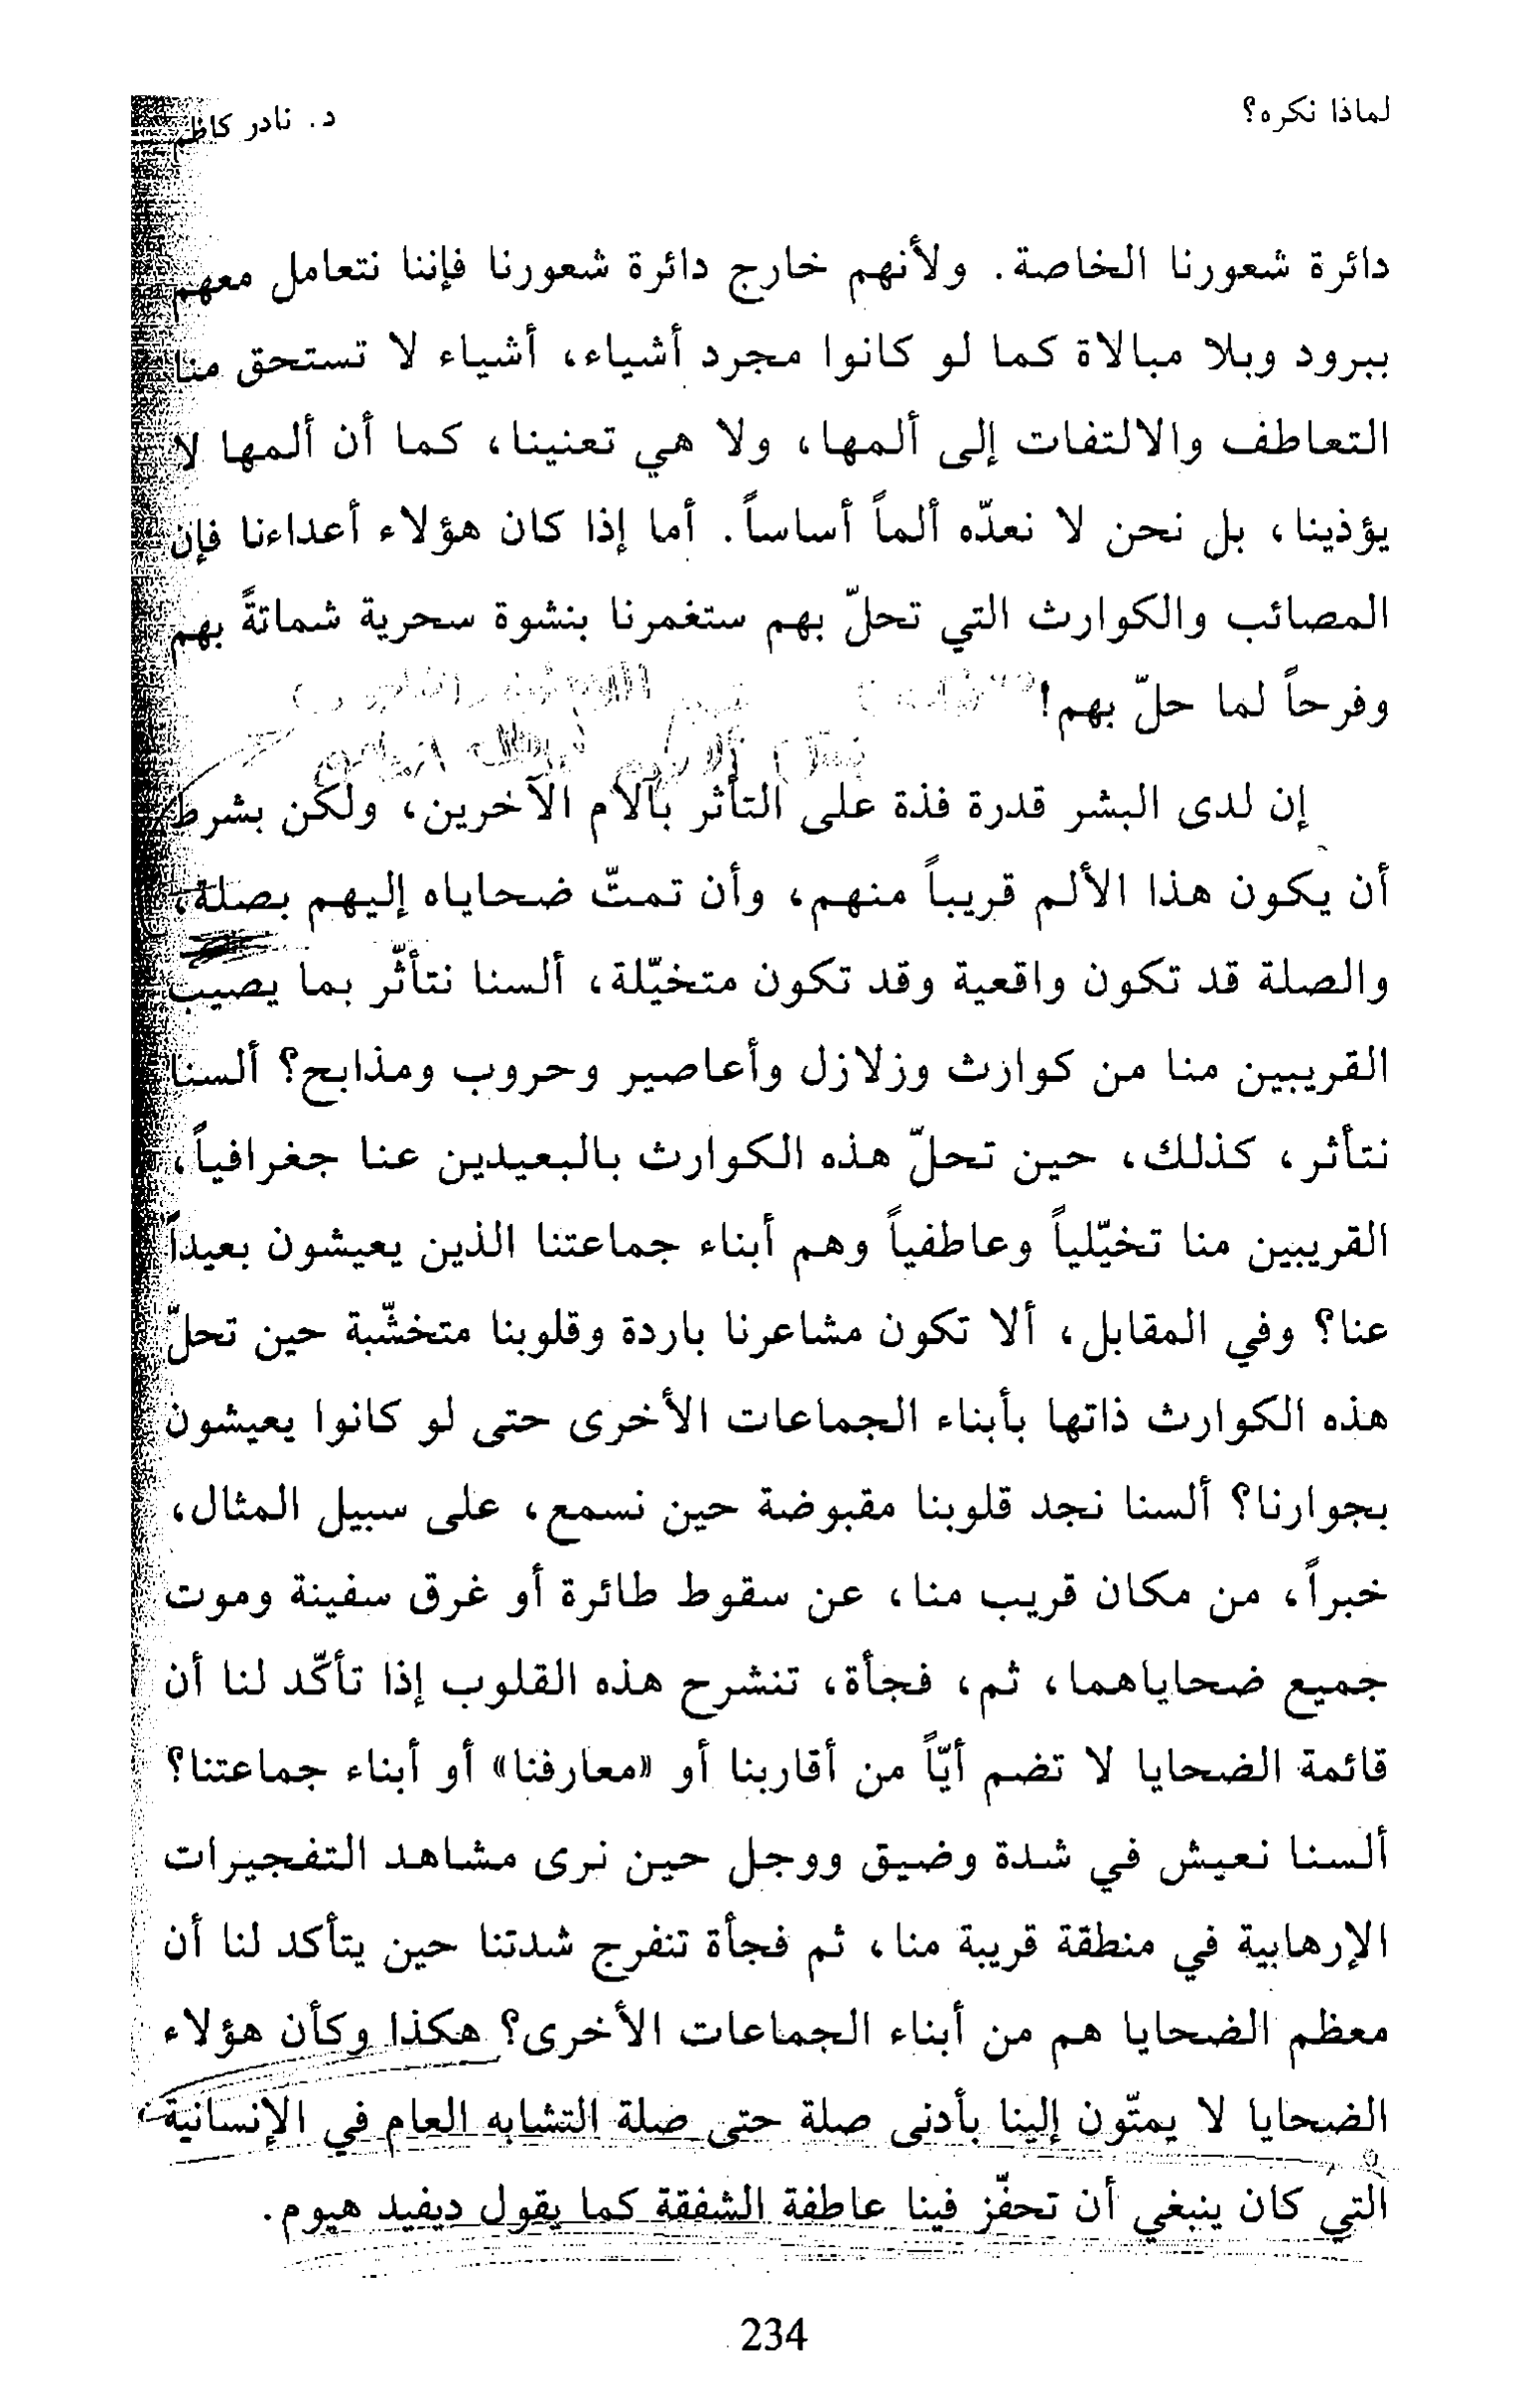 لماذا نكره؟
د. نادر كاظم
دائرة شعورنا الخاصة. ولأنهم خارج دائرة شعورنا فإننا نتعامل معهم
ببرود وبلا مبالاة كما لو كانوا مجرد أشياء، أشياء لا تستحق منا
التعاطف والالتفات إلى ألمها، ولا هي تعنينا، كما أن ألمها لا
يؤذينا، بل نحن لا نعدّه ألماً أساساً. أما إذا كان هؤلاء أعداءنا فإن
المصائب والكوارث التي تحلّ بهم ستغمرنا بنشوة سحرية شماتةً بهم
وفرحاً لما حلّ بهم!
إن لدى البشر قدرة فذة على التأثر بآلام الآخرين، ولكن بشرط
أن يكون هذا الألم قريباً منهم، وأن تمتّ ضحاياه إليهم بصلة،
والصلة قد تكون واقعية وقد تكون متخيّلة، ألسنا نتأثّر بما يصيب
القريبين منا من كوارث وزلازل وأعاصير وحروب ومذابح؟ ألسنا
نتأثر، كذلك، حين تحلّ هذه الكوارث بالبعيدين عنا جغرافياً،
القريبين منا تخيّلياً وعاطفياً وهم أبناء جماعتنا الذين يعيشون بعيداً
عنا؟ وفي المقابل، ألا تكون مشاعرنا باردة وقلوبنا متخشّبة حين تحلّ
هذه الكوارث ذاتها بأبناء الجماعات الأخرى حتى لو كانوا يعيشون
بجوارنا؟ ألسنا نجد قلوبنا مقبوضة حين نسمع، على سبيل المثال،
خبراً، من مكان قريب منا، عن سقوط طائرة أو غرق سفينة وموت
جميع ضحاياهما، ثم، فجأة، تنشرح هذه القلوب إذا تأكّد لنا أن
قائمة الضحايا لا تضم أيّاً من أقاربنا أو «معارفنا» أو أبناء جماعتنا؟
ألسنا نعيش في شدة وضيق ووجل حين نرى مشاهد التفجيرات
الإرهابية في منطقة قريبة منا، ثم فجأة تنفرج شدتنا حين يتأكد لنا أن
معظم الضحايا هم من أبناء الجماعات الأخرى؟ هكذا وكأن هؤلاء
الضحايا لا يمتّون إلينا بأدنى صلة حتى صلة التشابه العام في الإنسانية
التي كان ينبغي أن تحفّز فينا عاطفة الشفقة كما يقول ديفيد هيوم.
234